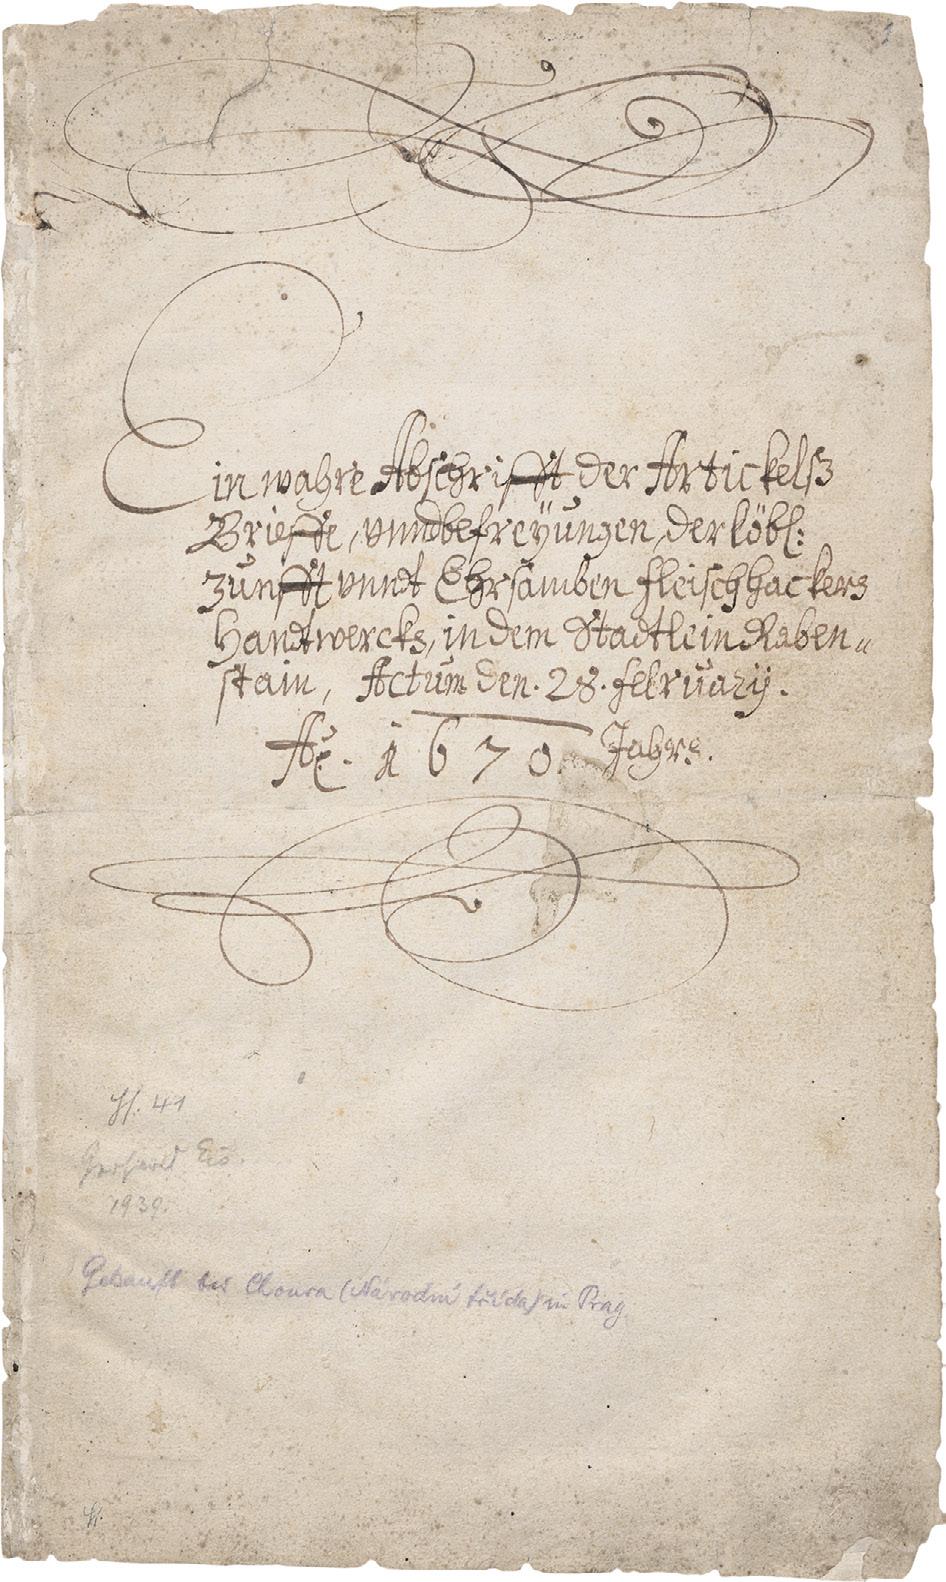 Ein wahre Abschrifft der Artickelß
Brieffe, vnnd befreyungen, der löbl:
Zunfft vnndt Ehrsamben fleischhackers
Handtwercks, in dem Stadtlein Raben„
stain, Actum den. 28. february.
Ao. 1670. Jahrs.
Hs. 41
Gerhard Eis.
1939.
Gekauft bei Choura (Národní třída) in Prag